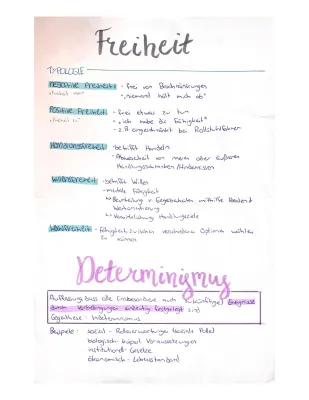 Freiheit
TYPOLOGIE
negative Freiheit: - frei von Beschränkungen
"Freiheit von" - "niemand hält mich ab"
Positive Freiheit: - frei etwas zu tun
"Freiheit zu" - "ich habe die Fähigkeit"
- z.B eingeschränkt bei Rollstuhlfahrer
Handlungsfreiheit: -betrifft Handeln
- Abwesenheit von inneren oder äußeren
Handlungsschranken/Hindernissen
Willensfreiheit: -betrifft Willen
- mentale Fähigkeit
↳ Beurteilung v. Gegebenheiten mithilfe
Wertorientierung
↳ Handlungsziele
Wahlfreiheit: - Fähigkeit zwischen verschiedenen Optionen wählen
zu können
Determinismus
Auffassung, dass alle (insbesondere auch zukünftige) Ereignisse
durch Vorbedingungen eindeutig festgelegt sind
Gegenthese: Indeterminismus
Beispiele: sozial - Rollenerwartungen (soziale Rolle)
biologisch - Voraussetzungen
institutionell - Gesetze
ökonomisch - Lebensstandard